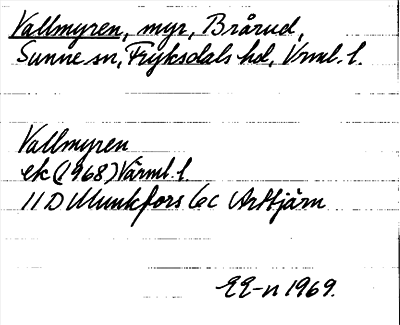 Vallmyren, myr, Brårud,
Sunne sn, Fryksdals hd, Vrml. l.
Vallmyren
ek (1968) Värml. l.
11 D Munkfors 6c
EE-n 1969.